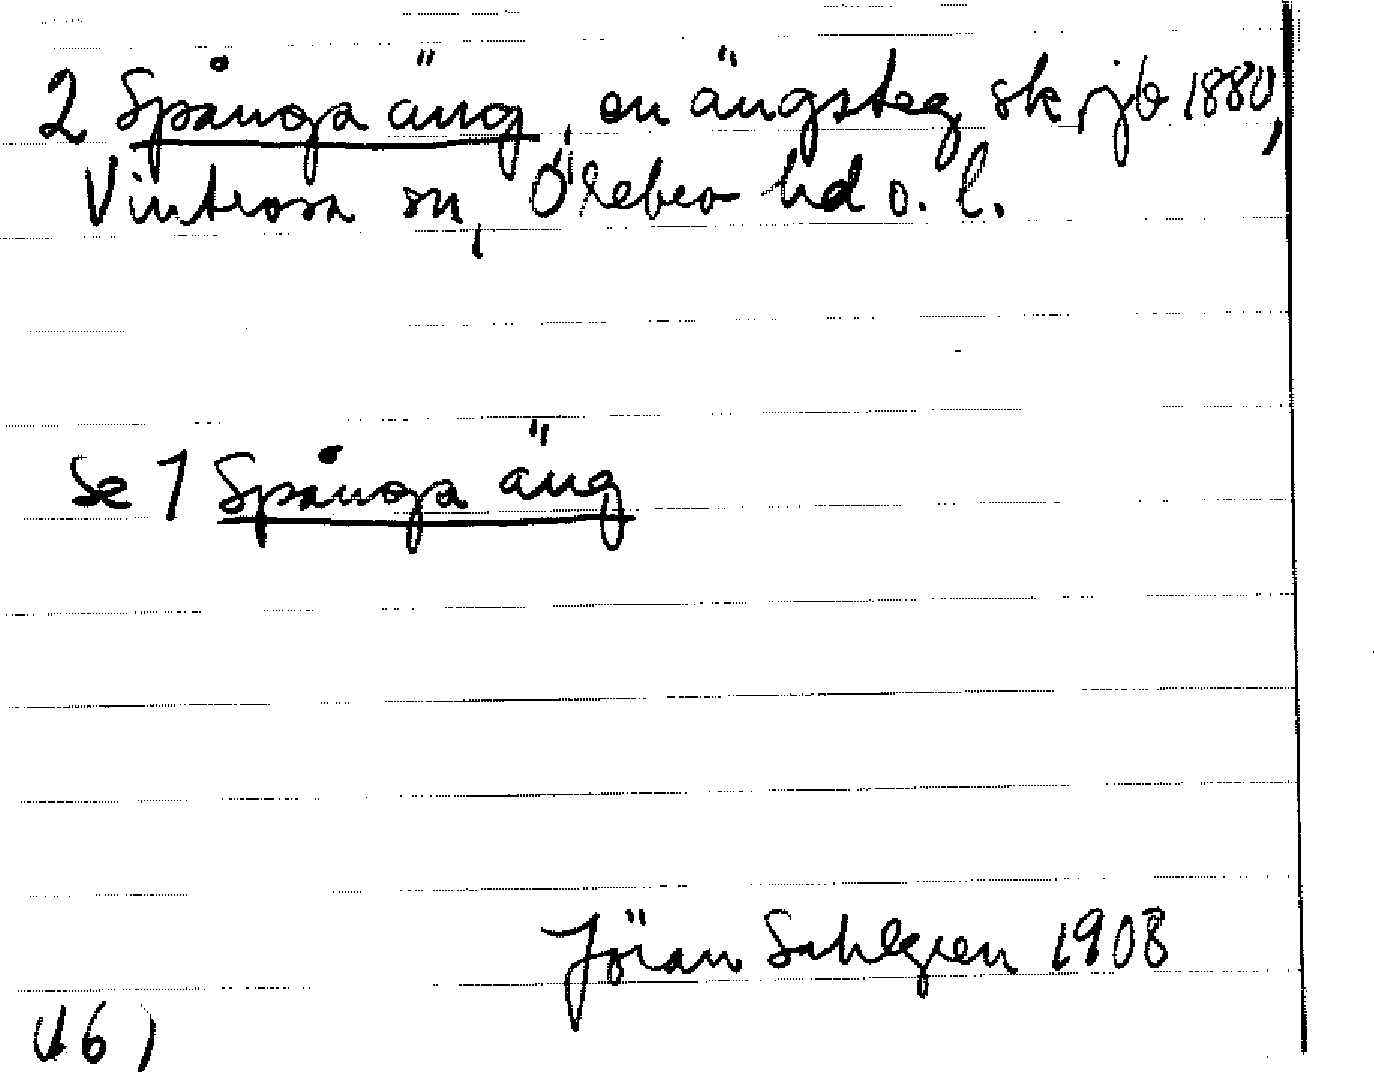 2 Spånga äng, en ängsteg sk jb 1880,
Vintrosa sn, Örebro hd o. l.
Se 1 Spånga äng
Jöran Sahlgren 1908
(16)